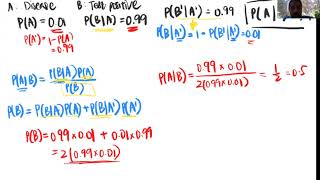 A: Disease
P(A) = 0.01
P(A') = 1 - P(A)
= 0.99
B: Test positive
P(B|A) = 0.99
P(B'|A') = 0.99
P(B|A') = 1 - P(B'|A') = 0.01
P(A|
P(A|B) = P(B|A)P(A) / P(B)
P(B) = P(B|A)P(A) + P(B|A')P(A')
P(B) = 0.99 × 0.01 + 0.01 × 0.99
= 2(0.99×0.01)
P(A|B) = 0.99 × 0.01 / 2(0.99×0.01) = 1/2 = 0.5